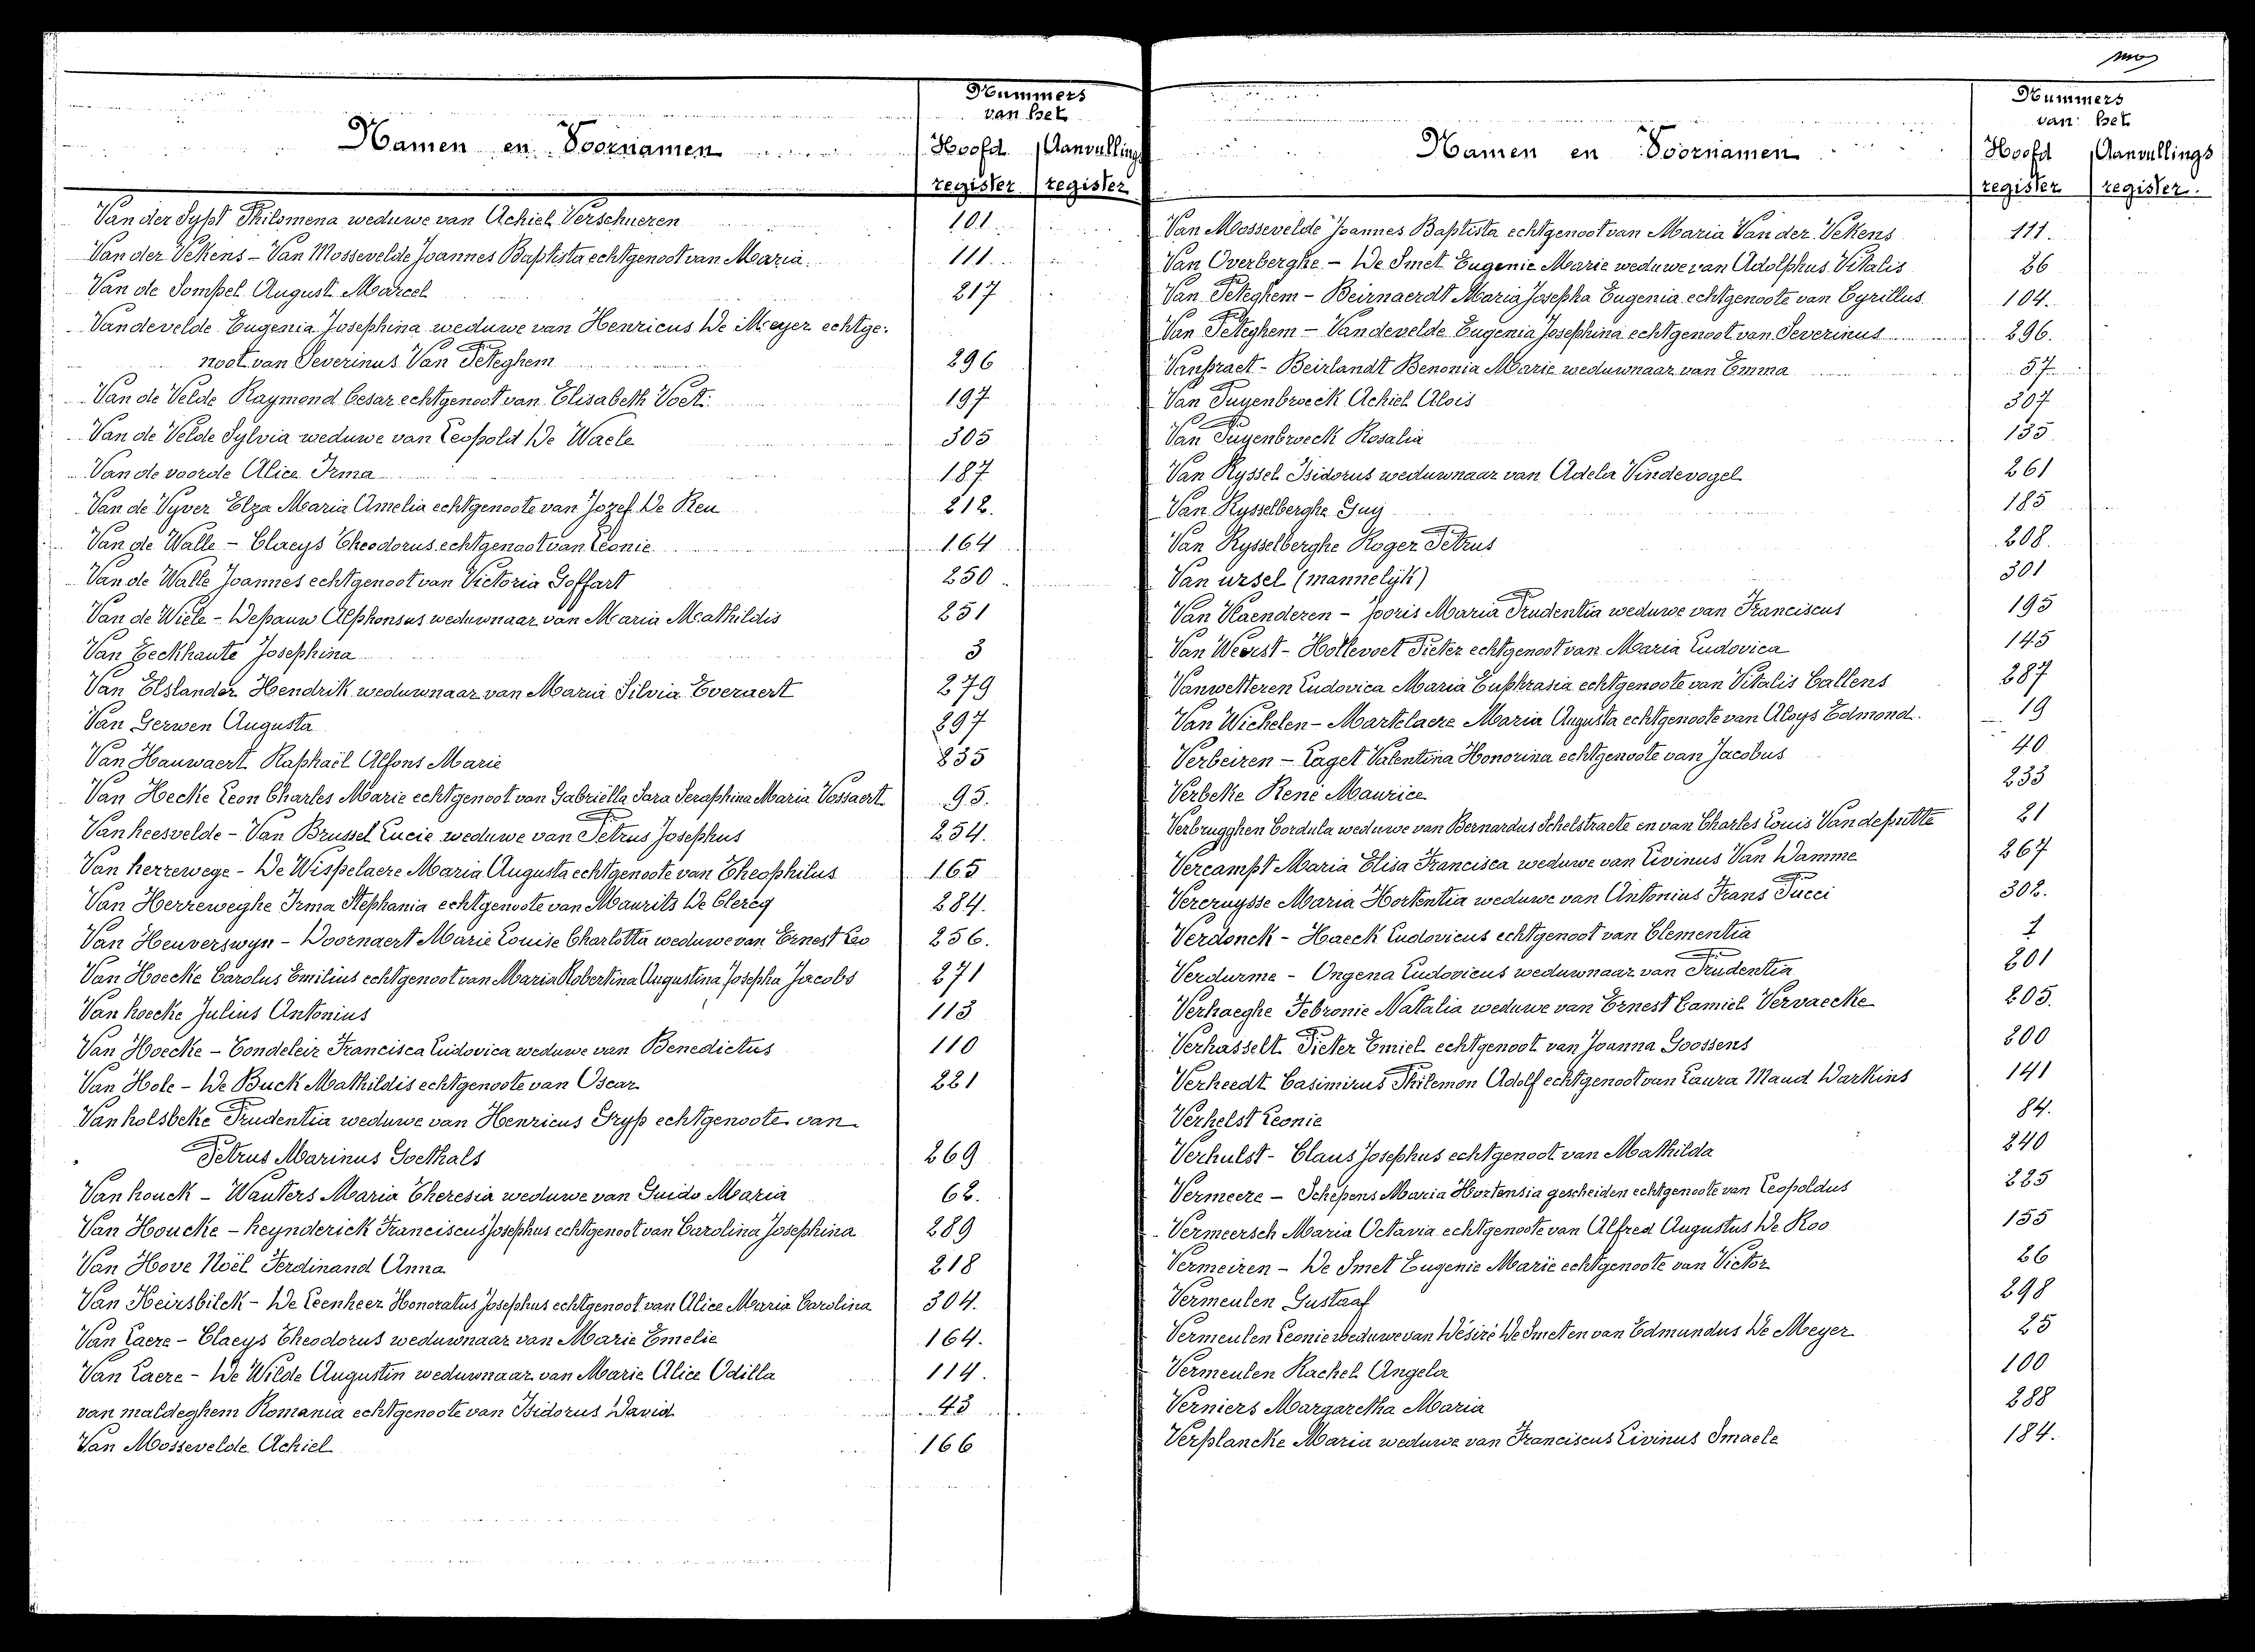 Nummers
van het
Namen en Voornamen
Hoofd Aanvullings
register register
Van der Sypt Philomena weduwe van Achiel Verschueren 101
Van der Vekens - Van Mossevelde Joannes Baptista echtgenoot van Maria 111
Van de Sompel August Marcel 217
Vandevelde Eugenia Josephina weduwe van Henricus De Meyer echtge-
noot van Severinus Van Peteghem 296
Van de Velde Raymond Cesar echtgenoot van Elisabeth Voet 197
Van de Velde Sylvia weduwe van Leopold De Waele 305
Van de voorde Alice Irma 187
Van de Vyver Elza Maria Amelia echtgenoote van Jozef De Reu 212.
Van de Walle - Claeys Theodorus echtgenoot van Leonie 164
Van de Walle Joannes echtgenoot van Victoria Goffart 250
Van de Wiele - Depauw Alphonsus weduwnaar van Maria Mathildis 251
Van Eeckhaute Josephina 3
Van Elslander Hendrik weduwnaar van Maria Silvia Everaert 279
Van Gerwen Augusta 297
Van Hauwaert Raphaël Alfons Marie 235
Van Hecke Leon Charles Marie echtgenoot van Gabriëlla Sara Seraphina Maria Vossaert 95.
Vanheesvelde - Van Brussel Lucie weduwe van Petrus Josephus 254.
Van herrewege - De Wispelaere Maria Augusta echtgenoote van Theophilus 165
Van Herreweghe Irma Stephania echtgenoote van Maurits De Clercq 284.
Van Heuverswyn - Doornaert Marie Louise Charlotta weduwe van Ernest Leo 256.
Van Hoecke Carolus Emilius echtgenoot van Maria Robertina Augustina Josepha Jacobs 271
Van hoecke Julius Antonius 113
Van Hoecke - Condeleir Francisca Ludovica weduwe van Benedictus 110
Van Hole - De Buck Mathildis echtgenoote van Oscar 221
Van holsbeke Prudentia weduwe van Henricus Gryp echtgenoote van
Petrus Marinus Goethals 269
Van houck - Wauters Maria Theresia weduwe van Guido Maria 62.
Van Houcke - heynderick Franciscus Josephus echtgenoot van Carolina Josephina 289
Van Hove Noël Ferdinand Anna 218
Van Keirsbilck - De Leenheer Honoratus Josephus echtgenoot van Alice Maria Carolina 304.
Van Laere - Claeys Theodorus weduwnaar van Marie Emelie 164.
Van Laere - De Wilde Augustin weduwnaar van Marie Alice Odilla 114.
van maldeghem Romania echtgenoote van Isidorus David 43
Van Mossevelde Achiel 166
Nummers
van het
Namen en Voornamen
Hoofd Aanvullings
register register.
Van Mossevelde Joannes Baptista echtgenoot van Maria Van der Vekens 111.
Van Overberghe - De Smet Eugenie Marie weduwe van Adolphus Vitalis 26
Van Peteghem - Beirnaerdt Maria Josepha Eugenia echtgenoote van Cyrillus 104.
Van Peteghem - Vandevelde Eugenia Josephina echtgenoot van Severinus 296.
Vanpraet - Beirlandt Benonia Marie weduwnaar van Emma 57
Van Puyenbroeck Achiel Alois 307
Van Puyenbroeck Rosalia 135
Van Ryssel Isidorus weduwnaar van Adela Vindevogel 261
Van Rysselberghe Guy 185
Van Rysselberghe Roger Petrus 208.
Van ursel (mannelijk) 301
Van Vlaenderen - Jooris Maria Prudentia weduwe van Franciscus 195
Van Weerst - Hollevoet Pieter echtgenoot van Maria Ludovica 145
Vanwetteren Ludovica Maria Euphrasia echtgenoote van Vitalis Callens 287
Van Wichelen - Martelaere Maria Augusta echtgenoote van Aloys Edmond. 19
Verbeiren - Laget Valentina Honorina echtgenoote van Jacobus 40
Verbeke René Maurice 233
Verbrugghen Cordula weduwe van Bernardus Schelstraete en van Charles Louis Vandeputte 21
Vercampt Maria Elisa Francisca weduwe van Livinus Van Damme 267
Vercruysse Maria Hortentia weduwe van Antonius Frans Pucci 302.
Verdonck - Haeck Ludovicus echtgenoot van Clementia 1
Verdurme - Ongena Ludovicus weduwnaar van Prudentia 201
Verhaeghe Febronie Natalia weduwe van Ernest Camiel Vervaecke 205.
Verhasselt Pieter Emiel echtgenoot van Joanna Goossens 200
Verheedt Casimirus Philemon Adolf echtgenoot van Laura Maud Warkins 141
Verhelst Leonie 84.
Verhulst - Claus Josephus echtgenoot van Mathilda 240
Vermeere - Schepens Maria Hortensia gescheiden echtgenoote van Leopoldus 225
Vermeersch Maria Octavia echtgenoote van Alfred Augustus De Roo 155
Vermeiren - De Smet Eugenie Marie echtgenoote van Victor 26
Vermeulen Gustaaf 298
Vermeulen Leonie weduwe van Désiré De Smet en van Edmundus De Meyer 25
Vermeulen Rachel Angela 100
Verniers Margaretha Maria 288
Verplancke Maria weduwe van Franciscus Livinus Smaele 184.